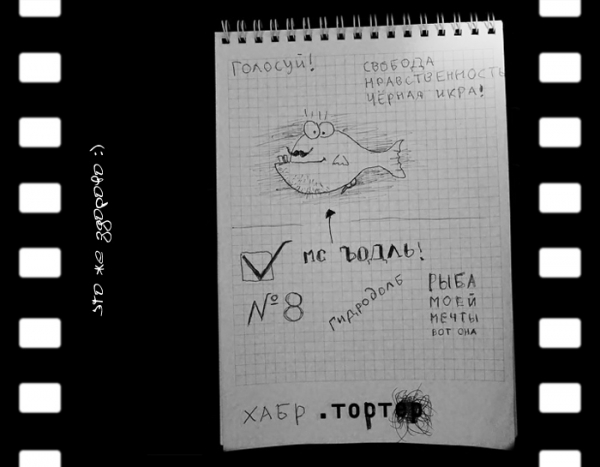 это же здорово :)
Голосуй!
СВОБОДА
НРАВСТВЕННОСТЬ
ЧЁРНАЯ ИКРА!
МС ЪОДЛЬ!
№8
гидродолб
РЫБА
МОЕЙ
МЕЧТЫ
ВОТ ОНА
ХАБР .ТОРТ